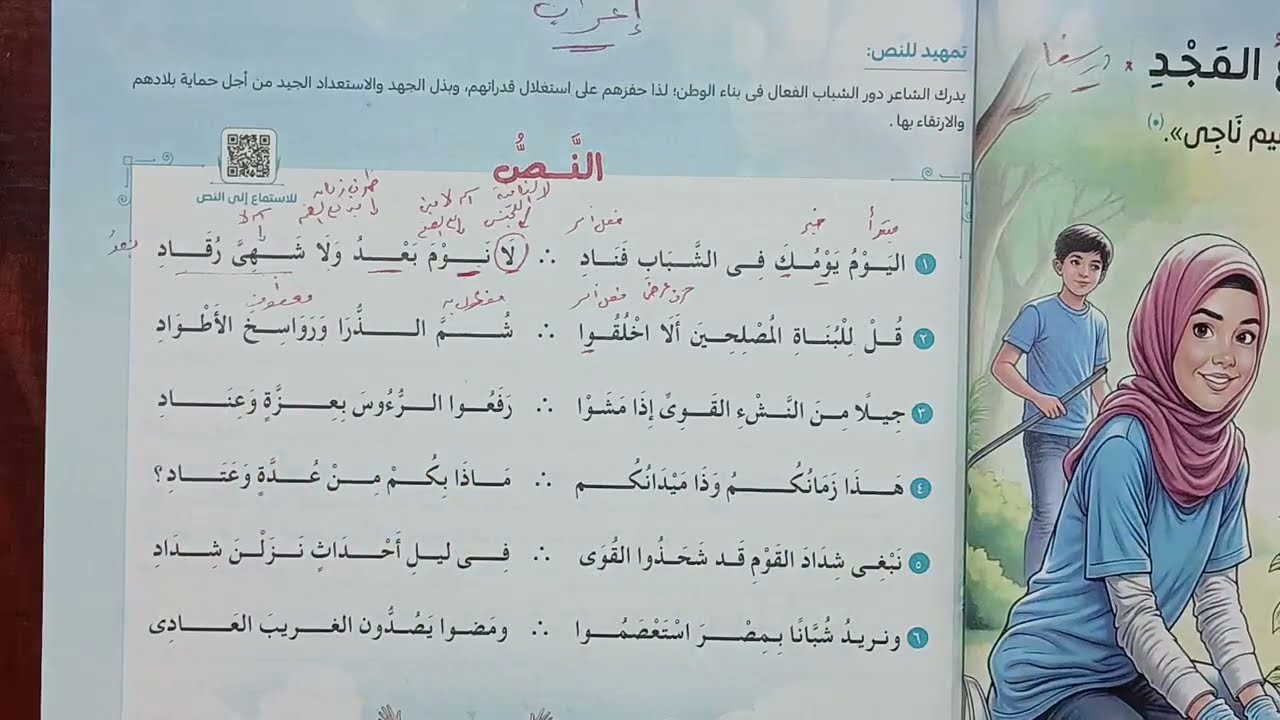 إعراب
تمهيد للنص:
يدرك الشاعر دور الشباب الفعال فى بناء الوطن؛ لذا حفزهم على استغلال قدراتهم، وبذل الجهد والاستعداد الجيد من أجل حماية بلادهم
والارتقاء بها .
النَّصُّ
للاستماع إلى النص
مبتدأ خبر فعل أمر
١ اليَوْمُ يَوْمُكَ فِى الشَّبَابِ فَنَادِ ∴ لَا نَوْمَ بَعْدُ وَلَا شَهِىَّ رُقَادِ
حرف عرض فعل أمر مفعول به معطوف
٢ قُلْ لِلْبُنَاةِ المُصْلِحِينَ أَلَا اخْلُقُوا ∴ شُمَّ الذُّرَا وَرَوَاسِخَ الأَطْوَادِ
٣ جِيلًا مِنَ النَّشْءِ القَوِىِّ إِذَا مَشَوْا ∴ رَفَعُوا الرُّءُوسَ بِعِزَّةٍ وَعِنَادِ
٤ هَذَا زَمَانُكُمُ وَذَا مَيْدَانُكُم ∴ مَاذَا بِكُمْ مِنْ عُدَّةٍ وَعَتَادِ؟
٥ نَبْغِى شِدَادَ القَوْمِ قَد شَحَذُوا القُوَى ∴ فِى ليلِ أَحْدَاثٍ نَزَلْنَ شِدَادِ
٦ ونريدُ شُبَّانًا بِمِصْرَ اسْتَعْصَمُوا ∴ ومَضوا يَصُدُّون الغريبَ العَادِى
المَجْدِ
نَاجِى».(*)